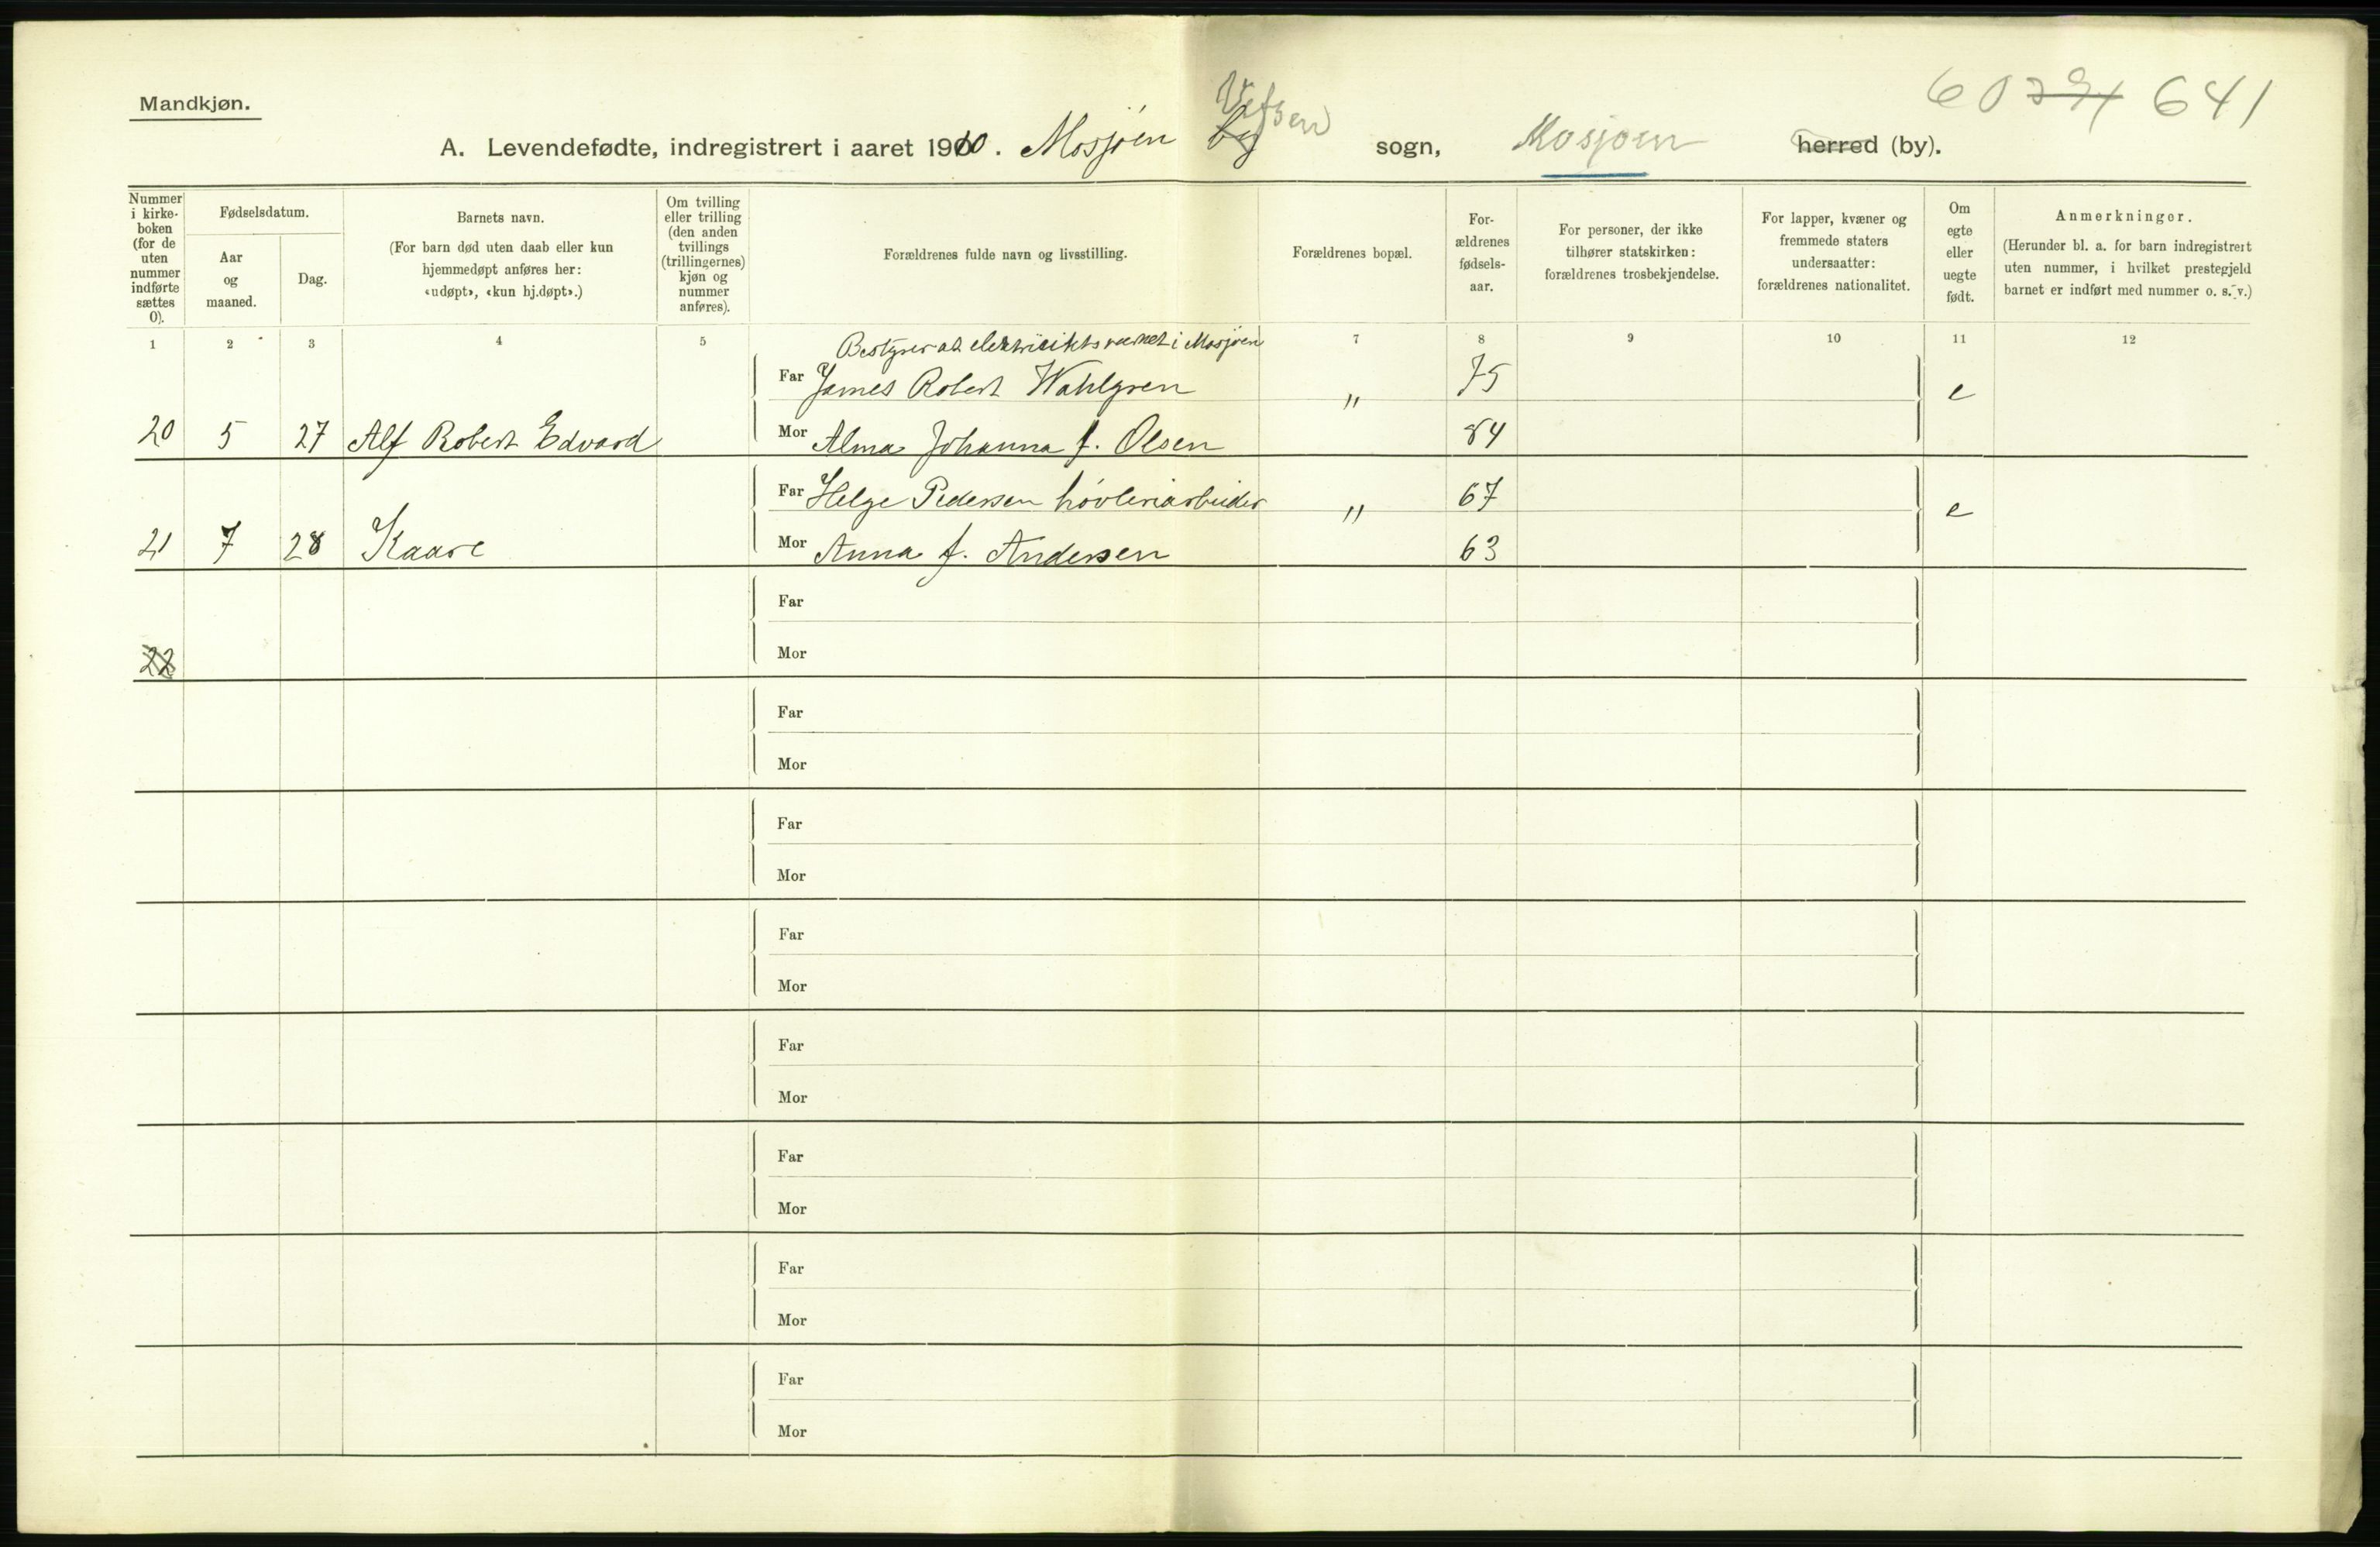 Mandkjøn.
603 641
Vefsen
A. Levendefødte, indregistrert i aaret 1910. Mosjøen by sogn, Mosjøen herred (by).
Nummer i kirke-boken (for de uten nummer indførte sættes 0).
Fødselsdatum.
Aar og maaned.
Dag.
Barnets navn.
(For barn død uten daab eller kun hjemmedøpt anføres her: «udøpt», «kun hj.døpt».)
Om tvilling eller trilling (den anden tvillings (trillingernes) kjøn og nummer anføres).
Forældrenes fulde navn og livsstilling.
Forældrenes bopæl.
For-ældrenes fødsels-aar.
For personer, der ikke tilhører statskirken: forældrenes trosbekjendelse.
For lapper, kvæner og fremmede staters undersaatter: forældrenes nationalitet.
Om egte eller uegte født.
Anmerkninger.
(Herunder bl. a. for barn indregistrert uten nummer, i hvilket prestegjeld barnet er indført med nummer o. s. v.)
1 2 3 4 5 7 8 9 10 11 12
Bestyrer at elektricitetsværket i Mosjøen
Far James Robert Wahlgren " 75 e
20 5 27 Alf Robert Edvard Mor Alma Johanna f. Olsen 84
Far Helge Pedersen høvleriarbeider " 67 e
21 7 28 Kaare Mor Anna f. Andersen 63
Far
22 Mor
Far
Mor
Far
Mor
Far
Mor
Far
Mor
Far
Mor
Far
Mor
Far
Mor